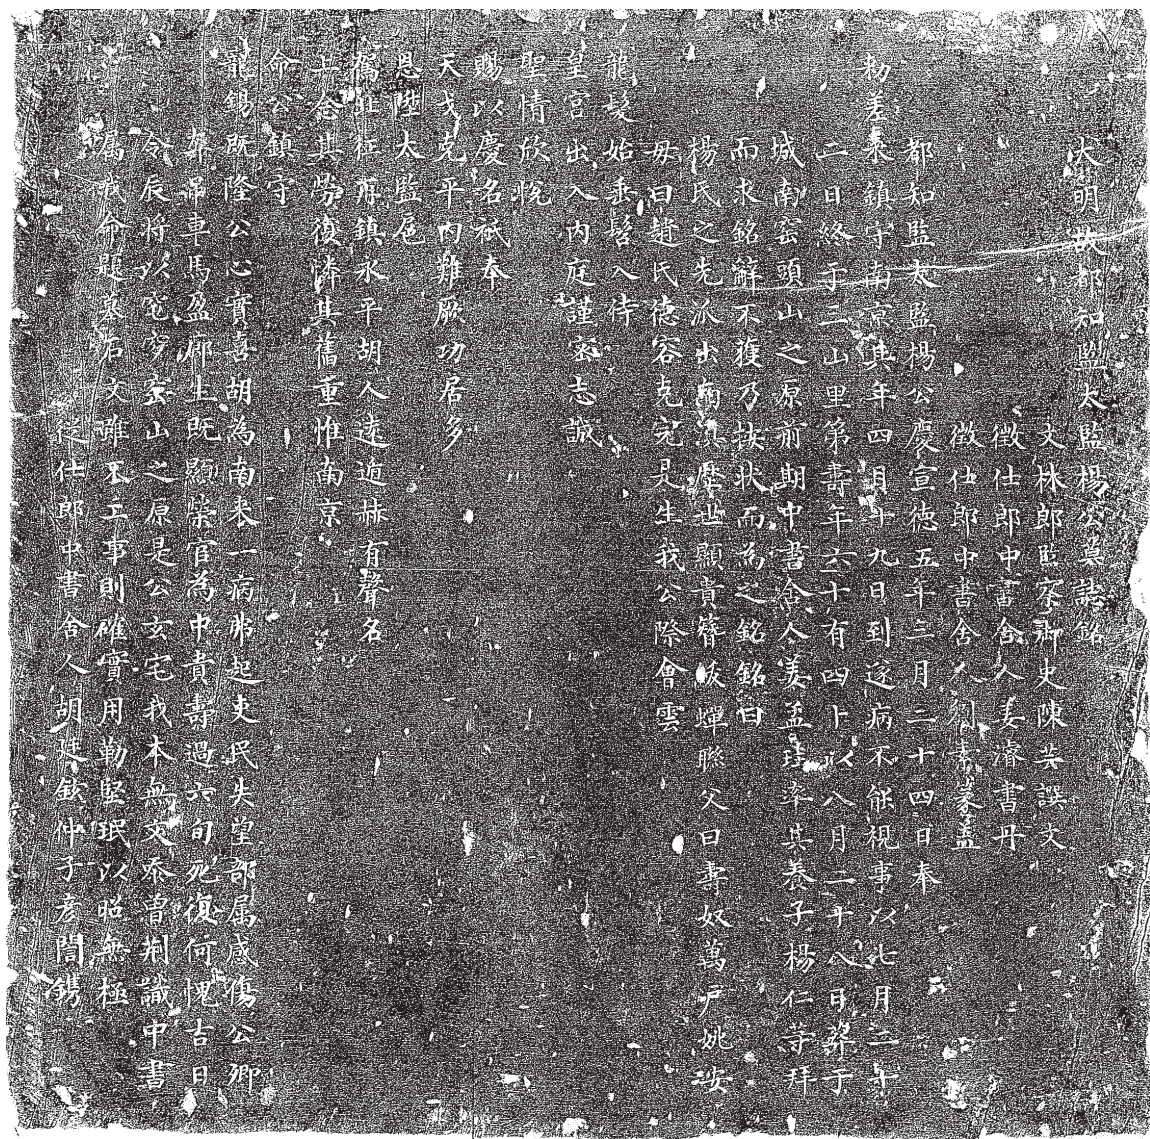 大明故都知監太監楊公墓誌銘
文林郎監察御史陳芸譔文
徵仕郎中書舍人姜濬書丹
徵仕郎中書舍人劉素篆盖
都知監太監楊公慶宣德五年三月二十四日奉
勑差来鎮守南京其年四月十九日到遂病不能視事以七月二十
二日終于三山里第壽年六十有四卜以八月二十八日葬于
城南窑頭山之原前期中書舍人姜孟圭率其養子楊仁等拜
而求銘辭不獲乃按狀而為之銘銘曰
楊氏之先派出南滇歷世顯貴簪紱蟬聯父曰壽奴萬戶姚安
母曰趙氏德容克完是生我公際會雲
龍髮始垂髫入侍
皇宫出入內庭謹密志誠
聖情欣悅
賜以慶名祗奉
天戈克平內難厥功居多
恩陞太監扈
駕北征再鎮永平胡人遠遁赫有聲名
上念其勞復憐其舊重惟南京
命公鎮守
寵錫既隆公心實喜胡為南来一病弗起吏民失望部属感傷公卿
奔弔車馬盈廊生既顯榮官為中貴壽過六旬死復何愧吉日
令辰将以窀穸窑山之原是公玄宅我本無文忝曽荆識中書
属我命題墓石文雖不工事則確實用勒堅珉以昭無極
從仕郎中書舍人胡廷鉉仲子彦誾鐫